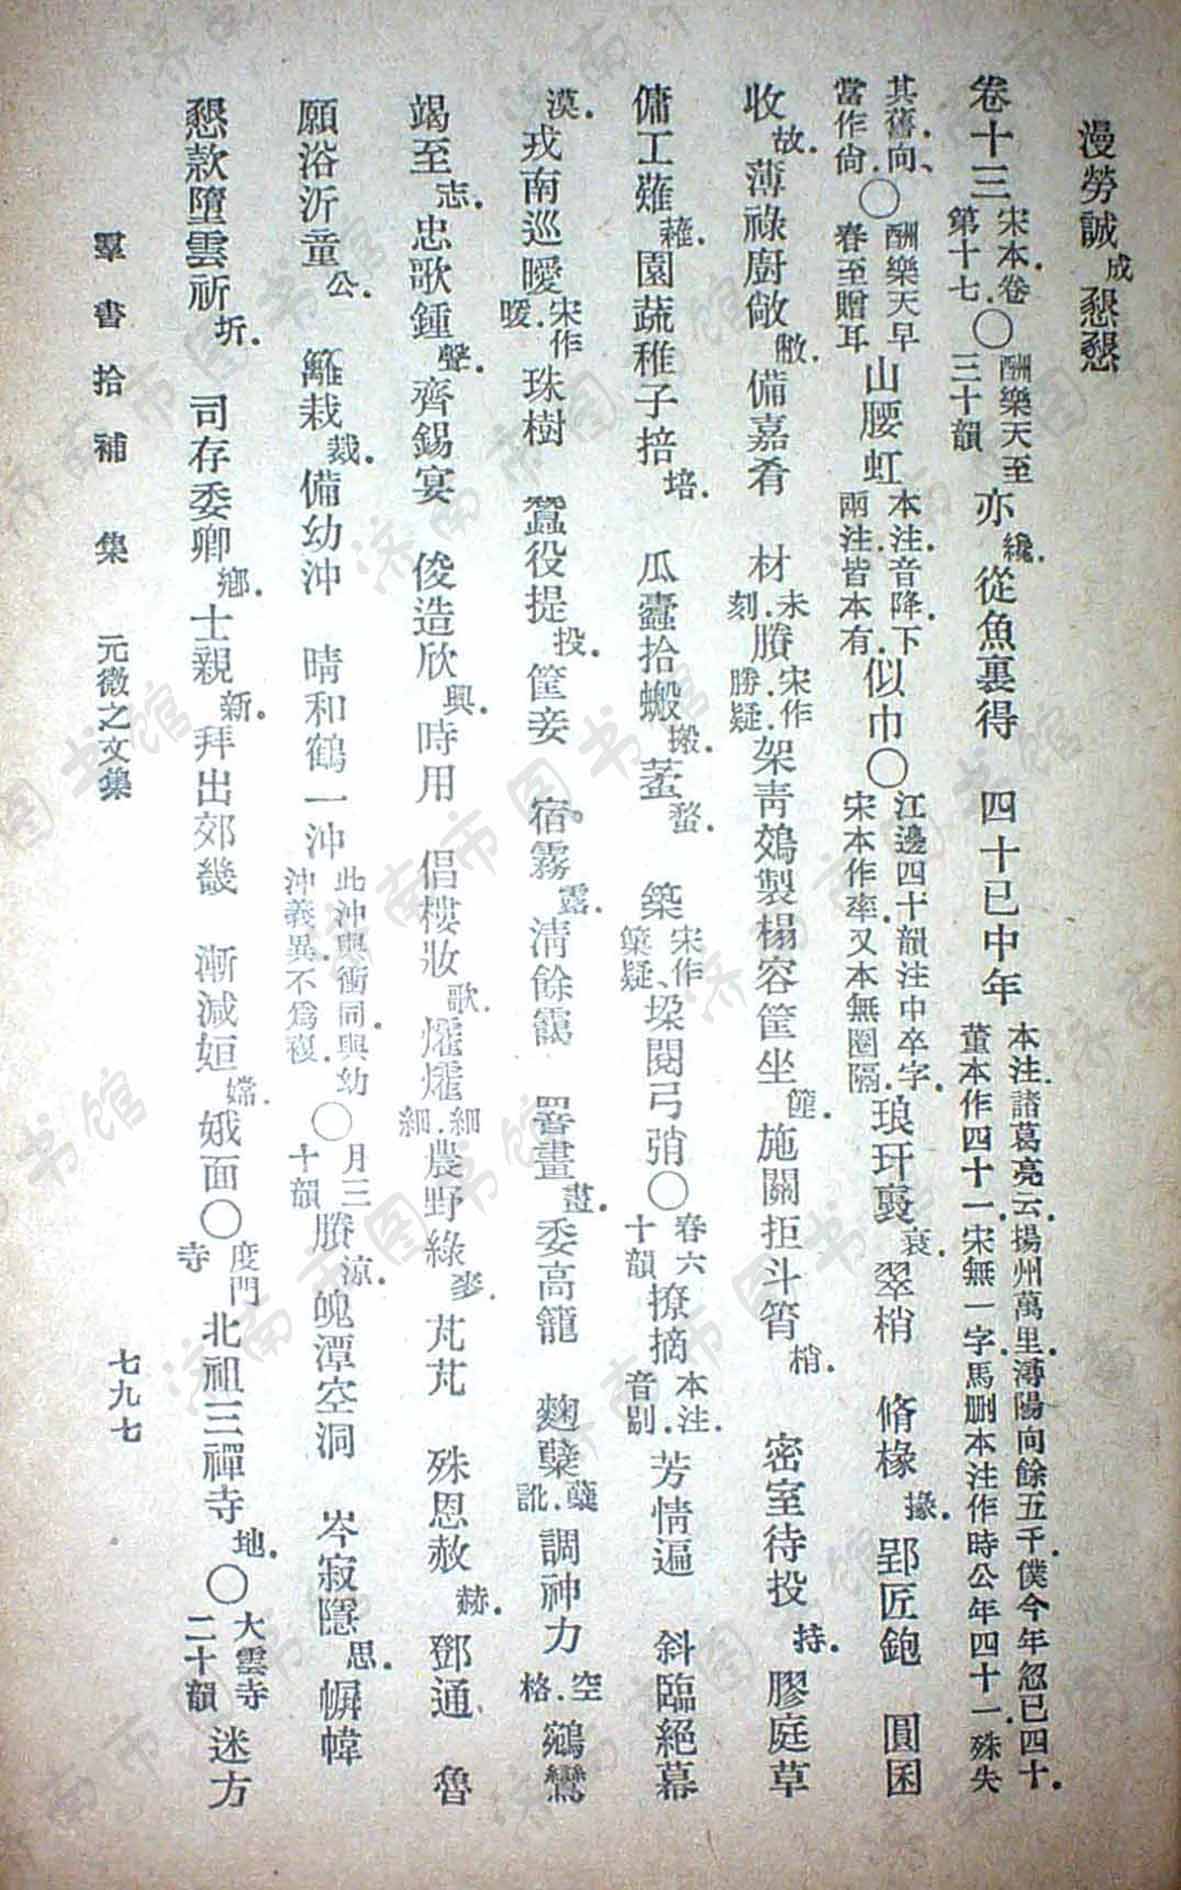 漫勞誠成懇懇
卷十三宋本卷第十七.〇酬樂天至三十韻亦纔.從魚裏得　四十已中年本注.諸葛亮云.揚州萬里.潯陽向餘五千.僕今年忽已四十.董本作四十一.宋無一字.馬刪本注作時公年四十一.殊失
其舊.向、當作尙.〇酬樂天早春至贈耳山腰虹本注.音降.下兩注.皆本有.似巾〇江邊四十韻注中卒字.宋本作率.又本無圈隔.琅玕裛衰.翠梢　脩椽掾.郢匠鉋　圓囷
收故.薄祿廚敞敝.備嘉肴　材未刻.賸宋作勝.疑.架靑鵁製榻容筐坐篚.施關拒斗筲梢.密室待投持.膠庭草
傭工薙蕹.園蔬稚子掊培.瓜蠹拾蝬搬.蠚螫.築宋作䉶.疑、垜閱弓弰〇春六十韻撩摘本注.音剔.芳情遍　斜臨絕幕
漠.戎南巡曖宋作暖.珠樹　蠶役提投.筐妾　宿霧露.淸餘靄　罨畫晝.委高籠　麴糵蘖訛.調神力空格.鵷鸞
竭至志.忠歌鍾聲.齊錫宴　俊造欣興.時用　倡樓妝歌.燿燿細細.農野綠麥.芃芃　殊恩赦赫.鄧通　魯
願浴沂童公.籬栽裁.備幼沖　晴和鶴一沖此沖與衝同.與幼沖義異.不爲複.〇月三十韻賸涼.魄潭空洞　岑寂隱思.幈幃
懇款墮雲祈圻.司存委卿鄉.士親新.拜出郊畿　漸減姮嫦.娥面〇度門寺北祖三禪寺地.〇大雲寺二十韻迷方
羣書拾補　集　元微之文集　七九七